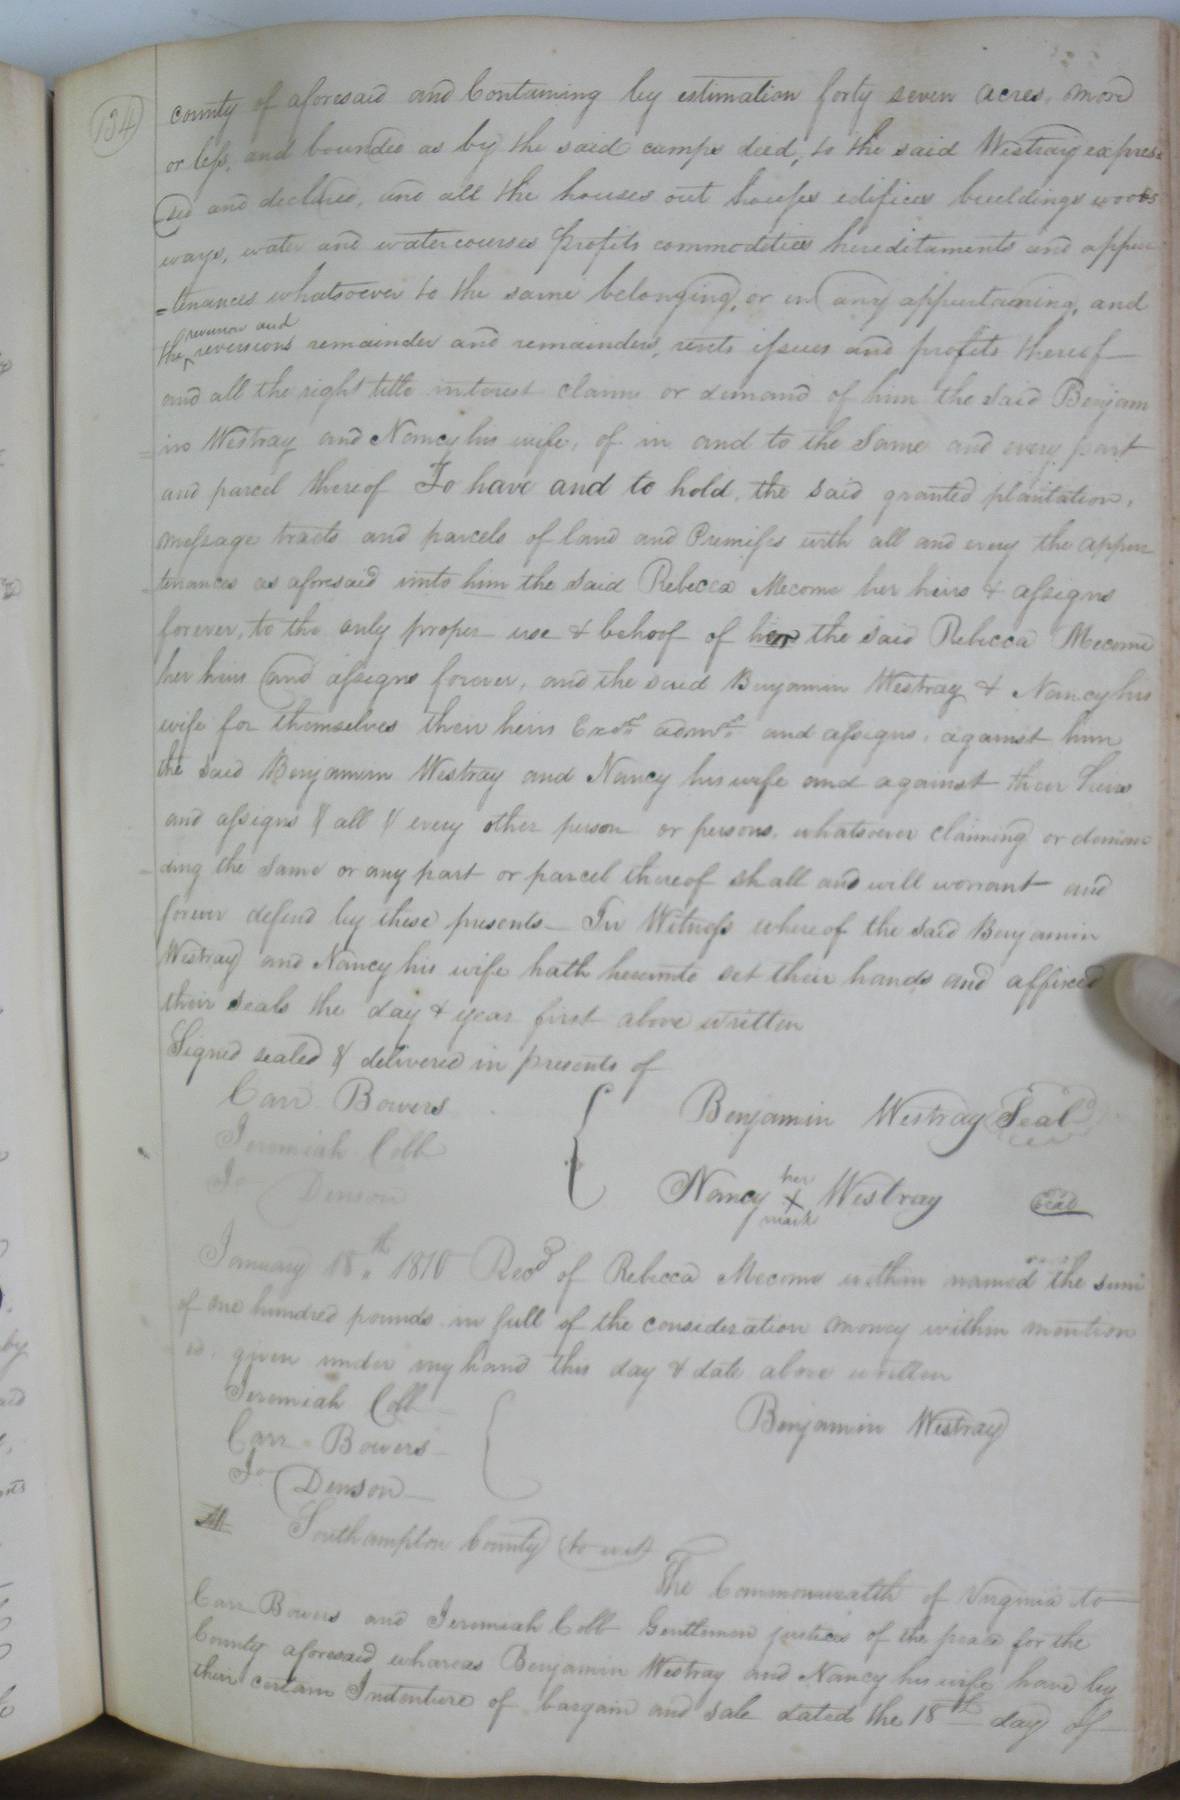 134
county of aforesaid and Containing by estimation forty seven acres, more
or less, and bounded as by the said camps deed, to the said Westray expres=
=sed and declared, and all the houses out houses edifices buildings woods
ways, water and watercourses profits commodities hereditaments and appur
=tenances whatsoever to the same belonging, or in any appertaining, and
reversion and
the reversions remainder and remainders, rents issues and profits thereof
and all the right title interest claim or demand of him the said Benjam
=in Westray and Nancy his wife, of in and to the Same and every part
and parcel thereof To have and to hold, the said granted plantation,
message tracts and parcels of land and Premises with all and every the appur
=tenances as aforesaid unto him the said Rebecca Mecome her heirs & assigns
forever, to the only proper use & behoof of her the said Rebecca Mecome
her heirs and assigns forever, and the said Benjamin Westray & Nancy his
wife for themselves their heirs Exors admrs and assigns, against him
the said Benjamin Westray and Nancy his wife and against their heirs
and assigns & all & every other person or persons, whatsoever claiming or deman
=ding the same or any part or parcel thereof shall and will warrant and
forever defend by these presents - In Witness whereof the said Benjamin
Westray and Nancy his wife hath hereunto set their hands and affixed
their seals the day & year first above written
Signed sealed & delivered in presents of
Carr Bowers
Jeremiah Cobb
Jo Denson
Benjamin Westray Seal
her
Nancy X Westray Seal
mark
January 18th 1810 Recd of Rebecca Mecome within named the sum
of one hundred pounds in full of the consideration money within mention
ed. given under my hand this day & date above written
Jeremiah Cobb
Carr Bowers
Jo Denson
Benjamin Westray
Southampton County to wit
The Commonwealth of Virginia to
Carr Bowers and Jeremiah Cobb Gentlemen justices of the peace for the
County aforesaid whereas Benjamin Westray and Nancy his wife have by
their certain Indenture of bargain and sale dated the 18th day of